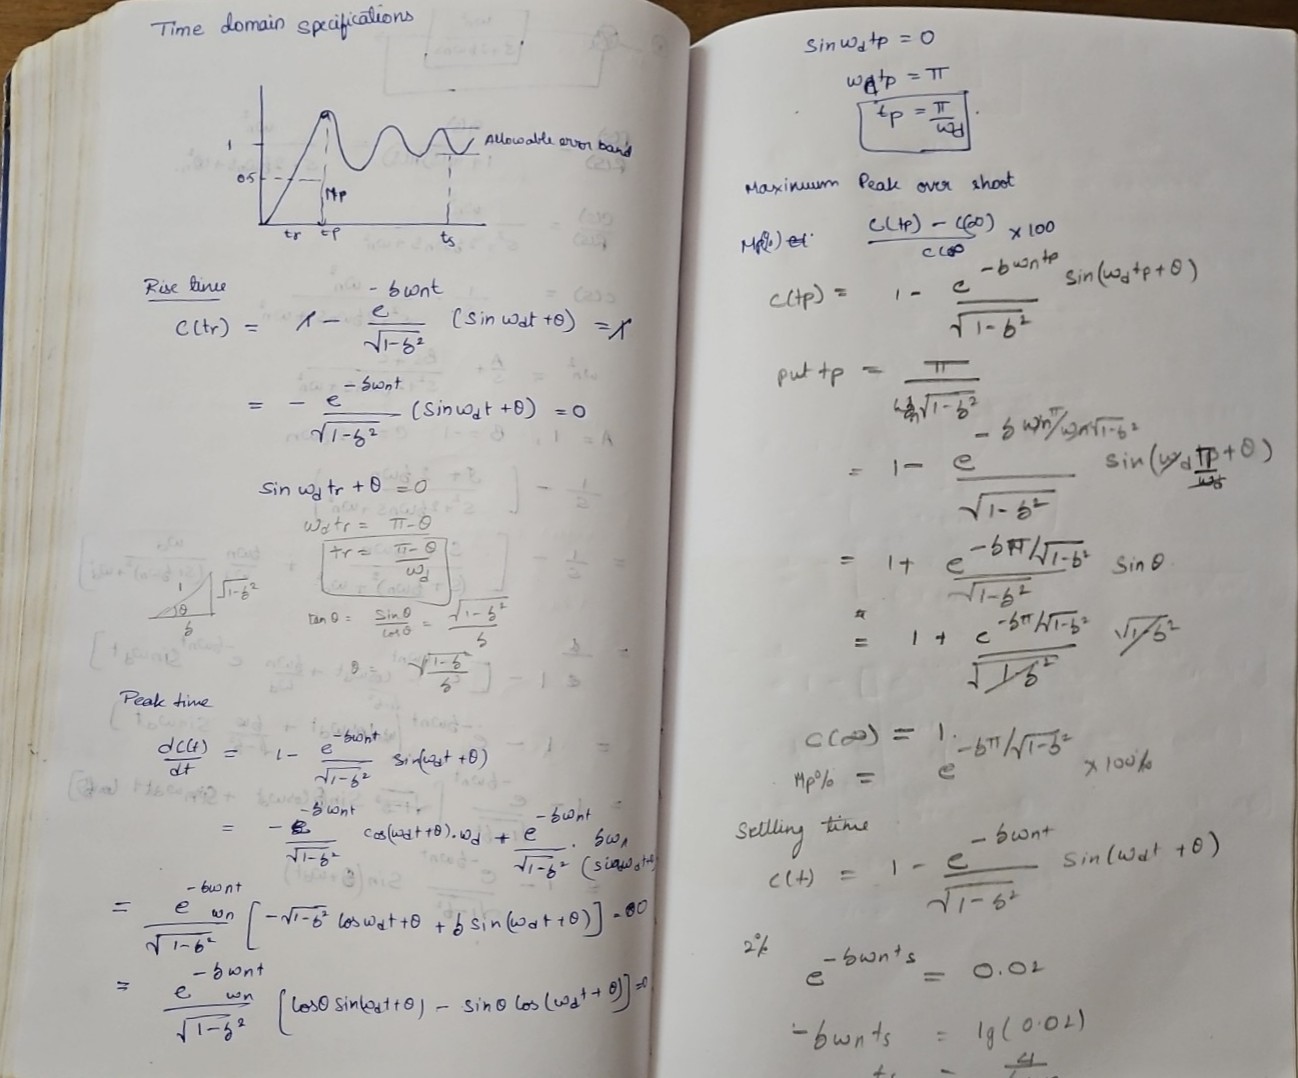 Time domain specifications
1
0.5
Allowable error band
Mp
tr tp ts
Rise time
C(tr) = 1 - e^-ζωnt/√1-ζ² (sin ωdt + θ) = 1
= - e^-ζωnt/√1-ζ² (sin ωdt + θ) = 0
sin ωdtr + θ = 0
ωdtr = π-θ
tr = π-θ/ωd
1 √1-ζ²
θ
ζ
tan θ = sinθ/cosθ = √1-ζ²/ζ
θ = √1-ζ²/ζ²
Peak time
dc(t)/dt = 1 - e^-ζωnt/√1-ζ² sin(ωdt + θ)
= - e^-ζωnt/√1-ζ² cos(ωdt+θ).ωd + e^-ζωnt/√1-ζ² . ζωn (sin ωdt+θ)
= e^-ζωnt ωn/√1-ζ² [-√1-ζ² cos ωdt+θ + ζ sin(ωdt+θ)] = 0
= e^-ζωnt ωn/√1-ζ² [cosθ sin(ωdt+θ) - sinθ cos(ωdt+θ)] = 0
sin ωdtp = 0
ωdtp = π
tp = π/ωd.
Maximum Peak over shoot
Mp%) C(tp) - C(∞)/C∞ × 100
C(tp) = 1 - e^-ζωntp/√1-ζ² sin(ωdtp + θ)
put tp = π/ωn√1-ζ²
= 1 - e^-ζωnπ/ωn√1-ζ²/√1-ζ² sin(ωd π/ωd + θ)
= 1 + e^-ζπ/√1-ζ²/√1-ζ² sin θ
= 1 + e^-ζπ/√1-ζ²/√1-ζ² √1-ζ²
C(∞) = 1.
Mp% = e^-ζπ/√1-ζ² × 100%
Settling time
C(t) = 1 - e^-ζωnt/√1-ζ² sin(ωdt + θ)
2% e^-ζωnts = 0.02
-ζωnts = lg(0.02)
ts = 4